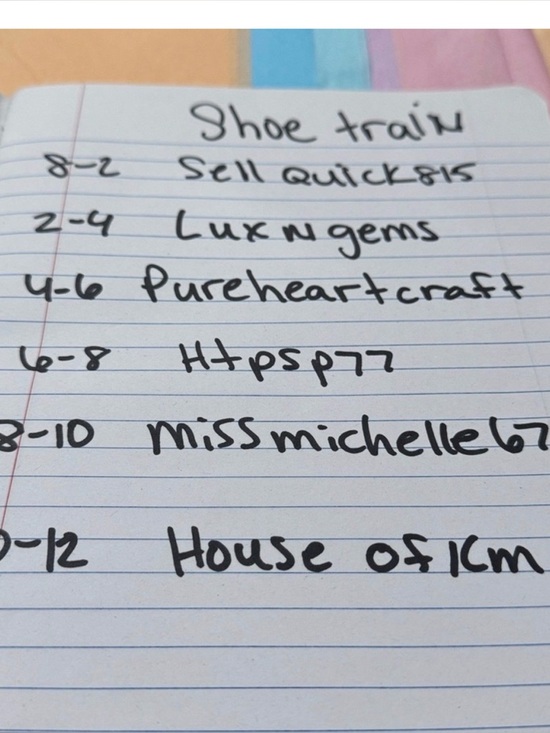 Shoe traiN
8-2 Sell Quick815
2-4 Lux N gems
4-6 Pureheartcraft
6-8 Htpsp77
8-10 missmichelle67
0-12 House of Km